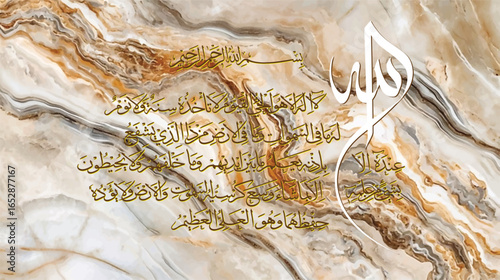 بسم الله الرحمن الرحيم
الله
لا إله إلا هو الحي القيوم لا تأخذه سنة ولا نوم
له ما في السموات وما في الأرض من ذا الذي يشفع
عنده إلا بإذنه يعلم ما بين أيديهم وما خلفهم ولا يحيطون
بشيء من علمه إلا بما شاء وسع كرسيه السموات والأرض ولا يؤده
حفظهما وهو العلي العظيم
Adobe Stock | #1652877167